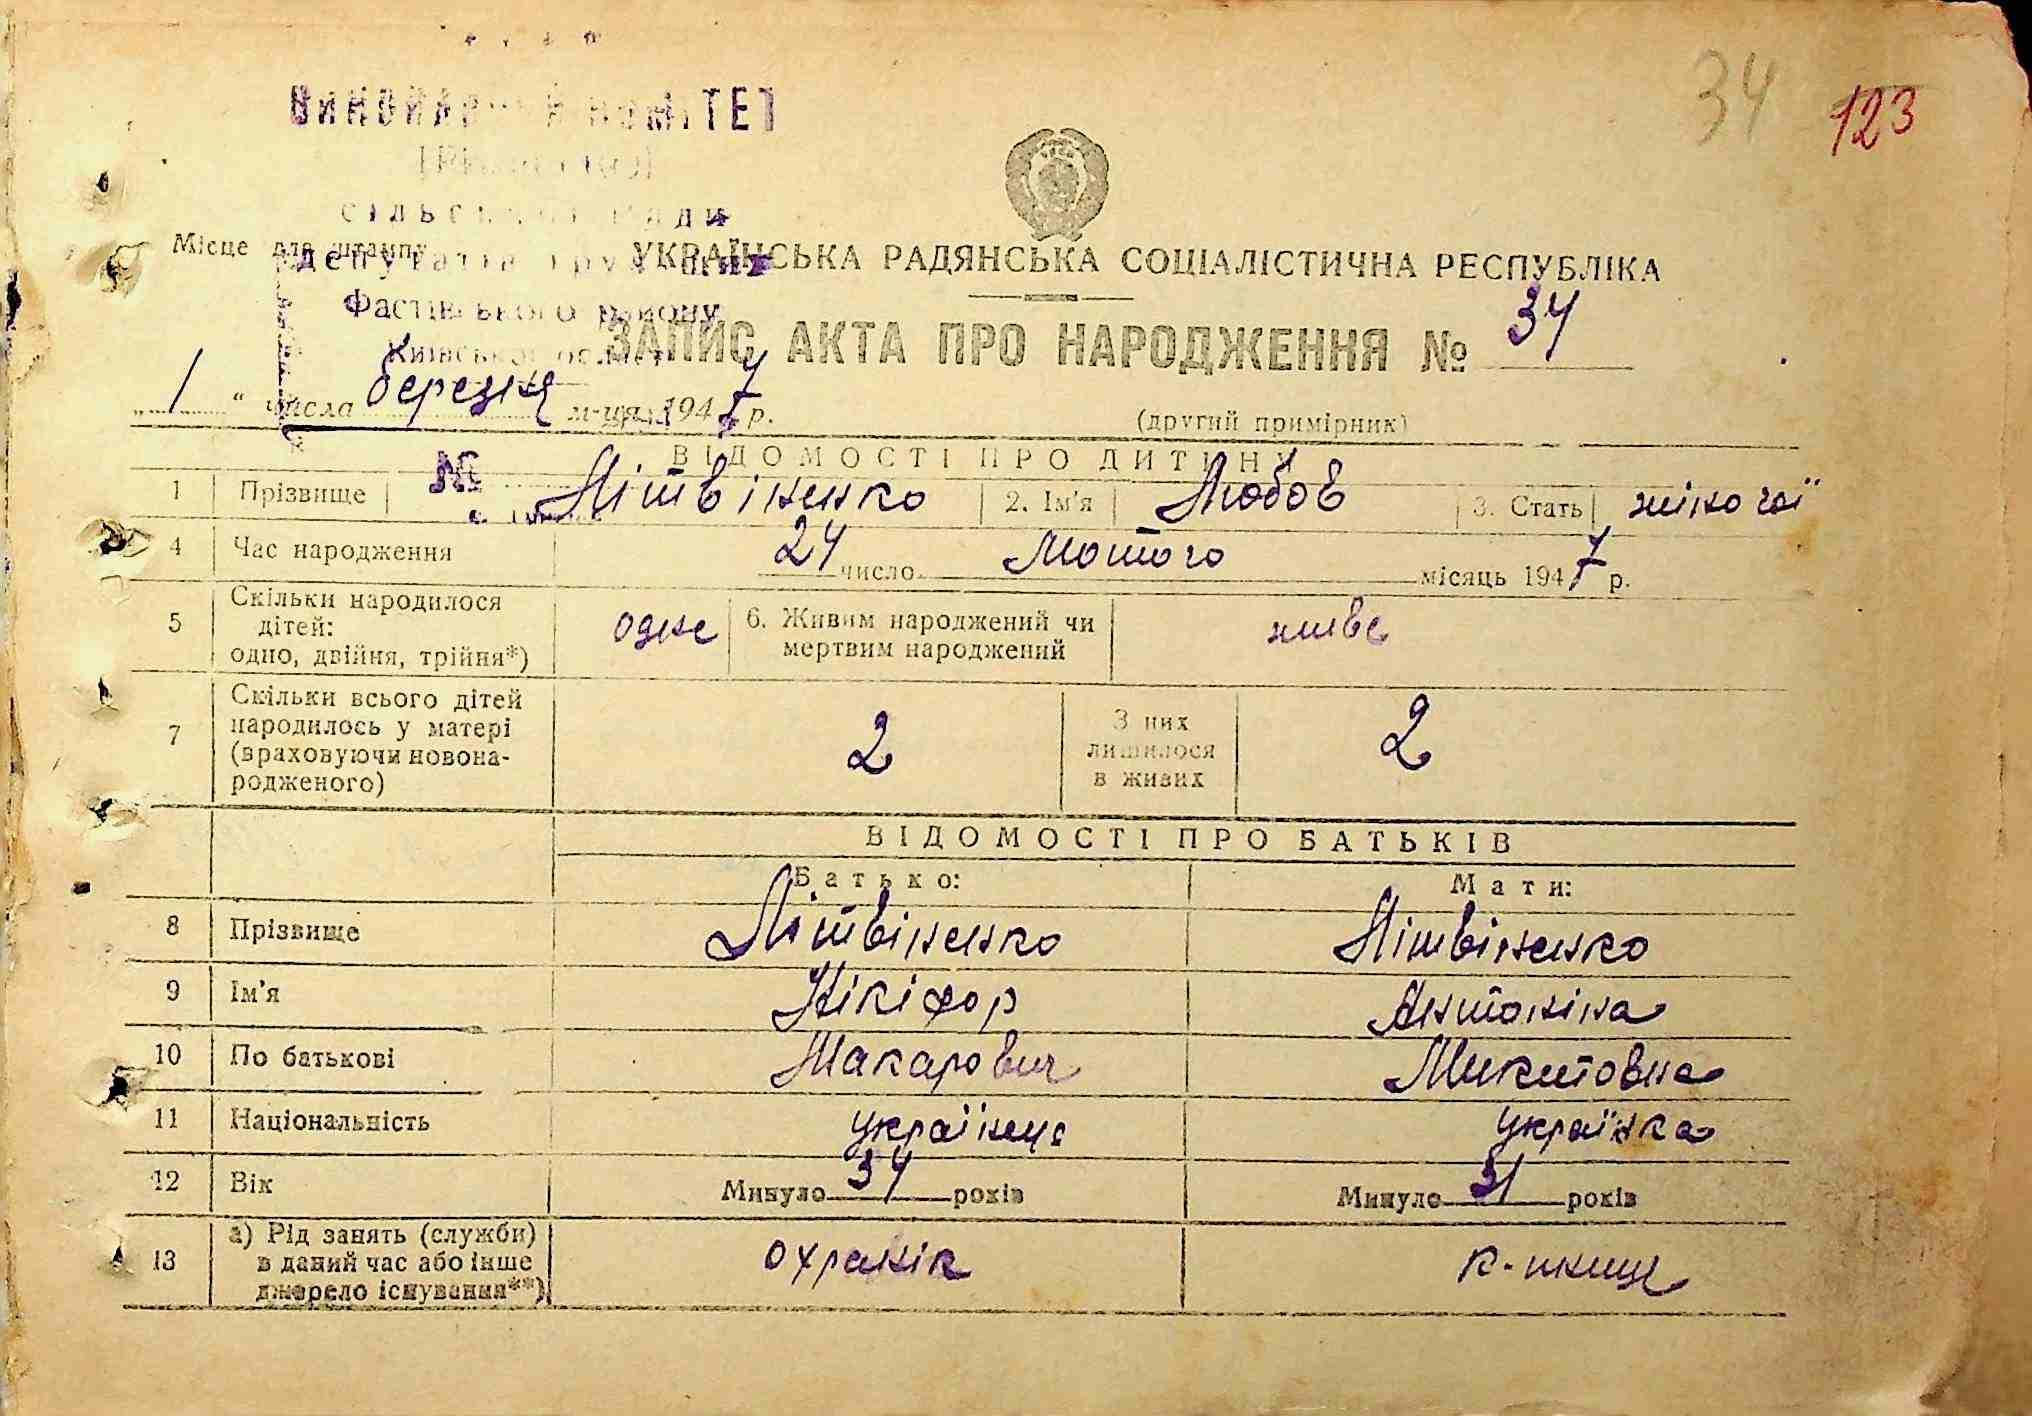 34 123
ВИКОНАВЧИЙ КОМІТЕТ
сільської Ради
Місце для штампу
депутатів трудящих
УКРАЇНСЬКА РАДЯНСЬКА СОЦІАЛІСТИЧНА РЕСПУБЛІКА
Фастівського району
Київської області
ЗАПИС АКТА ПРО НАРОДЖЕННЯ № 34
„ 1 “ числа березня м-ця 1947 р.
(другий примірник)
ВІДОМОСТІ ПРО ДИТИНУ
№
1 Прізвище Літвіненко 2. Ім'я Любов 3. Стать жіночої
4 Час народження 24 число Лютого місяць 1947 р.
5 Скільки народилося дітей: одно, двійня, трійня*) одне 6. Живим народжений чи мертвим народжений живе
7 Скільки всього дітей народилось у матері (враховуючи новонародженого) 2 З них лишилося в живих 2
ВІДОМОСТІ ПРО БАТЬКІВ
Батько: Мати:
8 Прізвище Літвіненко Літвіненко
9 Ім'я Нікіфор Антоніна
10 По батькові Макарович Микитовна
11 Національність українець українка
12 Вік Минуло 34 років Минуло 31 років
13 а) Рід занять (служби) в даний час або інше джерело існування**) охранік к-пниця